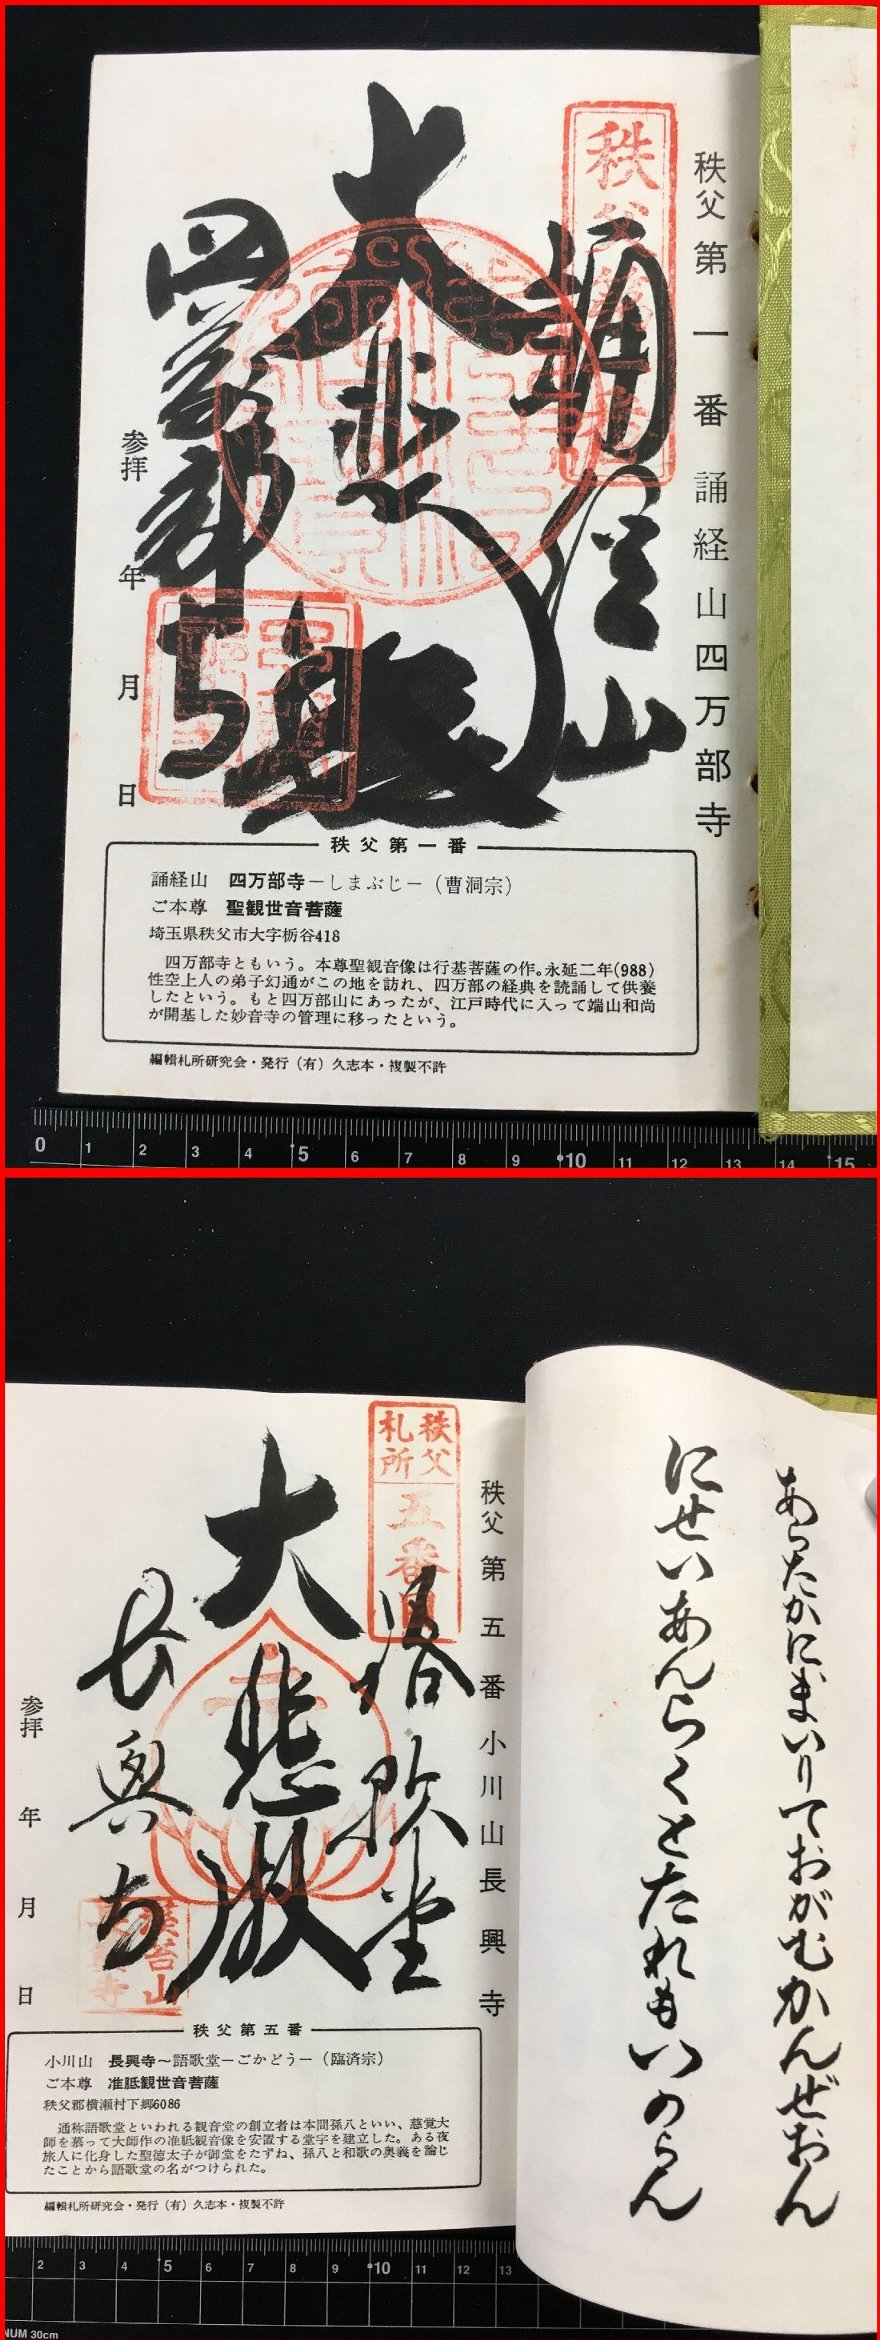 秩父第一番 誦経山四万部寺
秩父
誦経山
大悲殿
四万部寺
参拝 年 月 日
秩父第一番
誦経山 四万部寺－しまぶじ－（曹洞宗）
ご本尊 聖観世音菩薩
埼玉県秩父市大字栃谷418
四万部寺ともいう。本尊聖観音像は行基菩薩の作。永延二年(988)
性空上人の弟子幻通がこの地を訪れ、四万部の経典を読誦して供養
したという。もと四万部山にあったが、江戸時代に入って端山和尚
が開基した妙音寺の管理に移ったという。
編輯札所研究会・発行（有）久志本・複製不許
0 1 2 3 4 5 6 7 8 9 10 11 12 13 14 15
あらたかにまいりておがむかんぜおん
にせいあんらくとたれもいのらん
秩父第五番 小川山長興寺
秩父札所
五番
語歌堂
大悲殿
長興寺
参拝 年 月 日
秩父第五番
小川山 長興寺～語歌堂－ごかどう－（臨済宗）
ご本尊 准胝観世音菩薩
秩父郡横瀬村下郷6086
通称語歌堂といわれる観音堂の創立者は本間孫八といい、慈覚大
師を慕って大師作の准胝観音像を安置する堂宇を建立した。ある夜
旅人に化身した聖徳太子が御堂をたずね、孫八と和歌の奥義を論じ
たことから語歌堂の名がつけられた。
編輯札所研究会・発行（有）久志本・複製不許
2 3 4 5 6 7 8 9 10 11 12 13
NUM 30cm